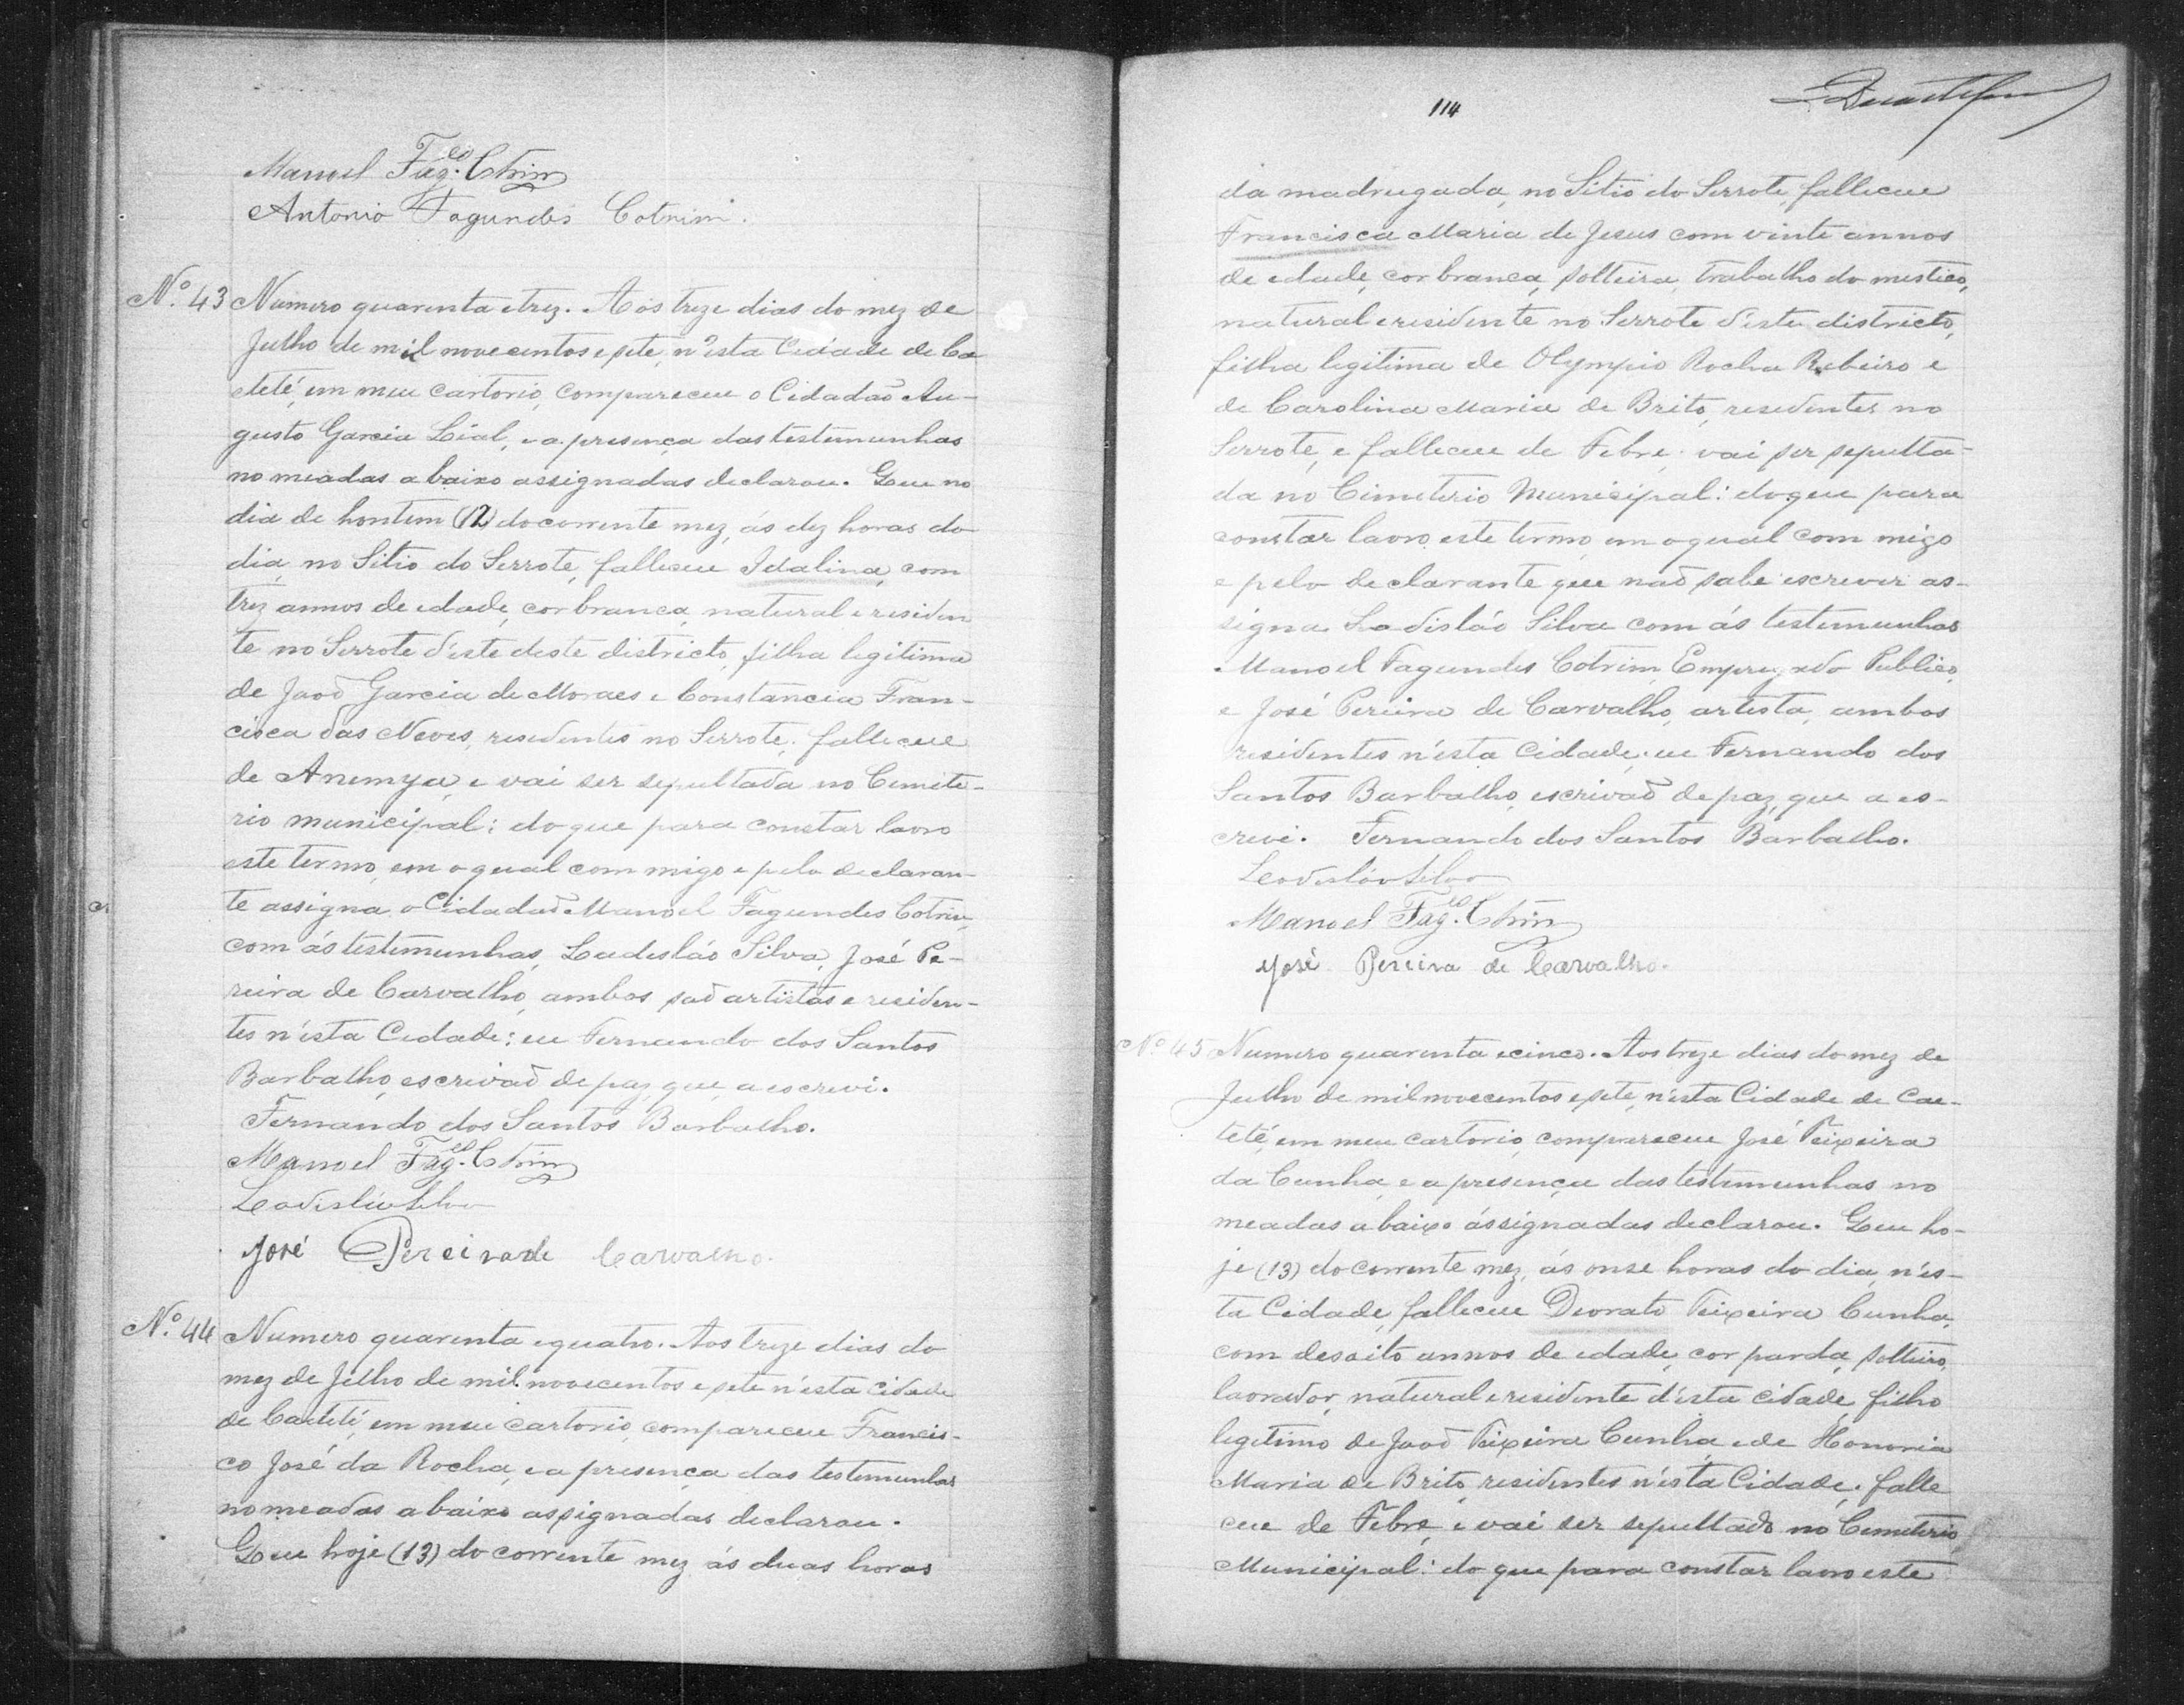 Manoel Fag.es Cotrim
Antonio Fagundes Cotrim.
Nº. 43 Numero quarenta e trez. Aos treze dias do mez de
Julho de mil novecentos e sete, n'esta Cidade de Ca-
eteté, em meu cartorio, compareceu o Cidadaõ Au-
gusto Garcia Lial, e a presença das testemunhas
nomeadas abaixo assignadas declarou. Que no
dia de hontem (12) do corrente mez, ás dez horas do
dia, no Sitio do Serrote, falleceu Idalina, com
trez annos de edade, cor branca, natural e residen
te no Serrote d'este deste districto, filha legitima
de Joaõ Garcia de Moraes e Constancia Fran-
cisca das Neves, residentes no Serrote. falleceu
de Anemya, e vai ser sepultada no Cemite-
rio municipal: do que para constar lavro
este termo, em o qual commigo e pelo declaran-
te assigna o Cidadaõ Manoel Fagundes Cotrim,
com ás testemunhas, Ladisláo Silva, José Pe-
reira de Carvalho, ambos saõ artistas e residen-
tes n'esta Cidade: eu Fernando dos Santos
Barbalho, escrivaõ de paz, que a escrevi.
Fernando dos Santos Barbalho.
Manoel Fag.es Cotrim
Ladisláo Silva
José Pereira de Carvalho.
Nº. 44 Numero quarenta e quatro. Aos treze dias do
mez de Julho de mil novecentos e sete n'esta Cidade
de Caeteté, em meu cartorio, compareceu Francis-
co José da Rocha, e a presença das testemunhas
nomeadas abaixo assignadas declarou.
Que hoje (13) do corrente mez ás duas horas
114
da madrugada, no Sitio do Serrote, falleceu
Francisca Maria de Jesus com vinte annos
de edade, cor branca, solteira, trabalho domestico,
natural e residente no Serrote d'este districto,
filha legitima de Olympio Rocha Ribeiro e
de Carolina Maria de Brito, residentes no
Serrote, e falleceu de Febre; vai ser sepulta-
da no Cimeterio Municipal: do que para
constar lavro este termo, em o qual commigo
e pelo declarante que naõ sabe escrever as-
signa Ladisláo Silva com ás testemunhas
Manoel Fagundes Cotrim, Empregado Publico,
e José Pereira de Carvalho, artista, ambos
residentes n'esta Cidade; eu Fernando dos
Santos Barbalho, escrivaõ de paz, que a es-
crevi. Fernando dos Santos Barbalho.
Ladisláo Silva
Manoel Fag.es Cotrim
José Pereira de Carvalho.
Nº 45 Numero quarenta e cinco. Aos treze dias do mez de
Julho de mil novecentos e sete, n'esta Cidade de Cae-
teté, em meu cartorio, compareceu José Teixeira
da Cunha, e a presença das testemunhas no
meadas abaixo ássignadas declarou. Que ho-
je (13) do corrente mez, ás onse horas do dia, n'es-
ta Cidade, falleceu Deorato Teixeira Cunha,
com desoito annos de edade, cor parda, solteiro,
lavrador, natural e residente d'esta cidade, filho
legitimo de Joaõ Teixeira Cunha, e de Honoria
Maria de Brito, residentes n'esta Cidade. falle
ceu de Febre, e vai ser sepultado no Cemeterio
Municipal: do que para constar lavro este